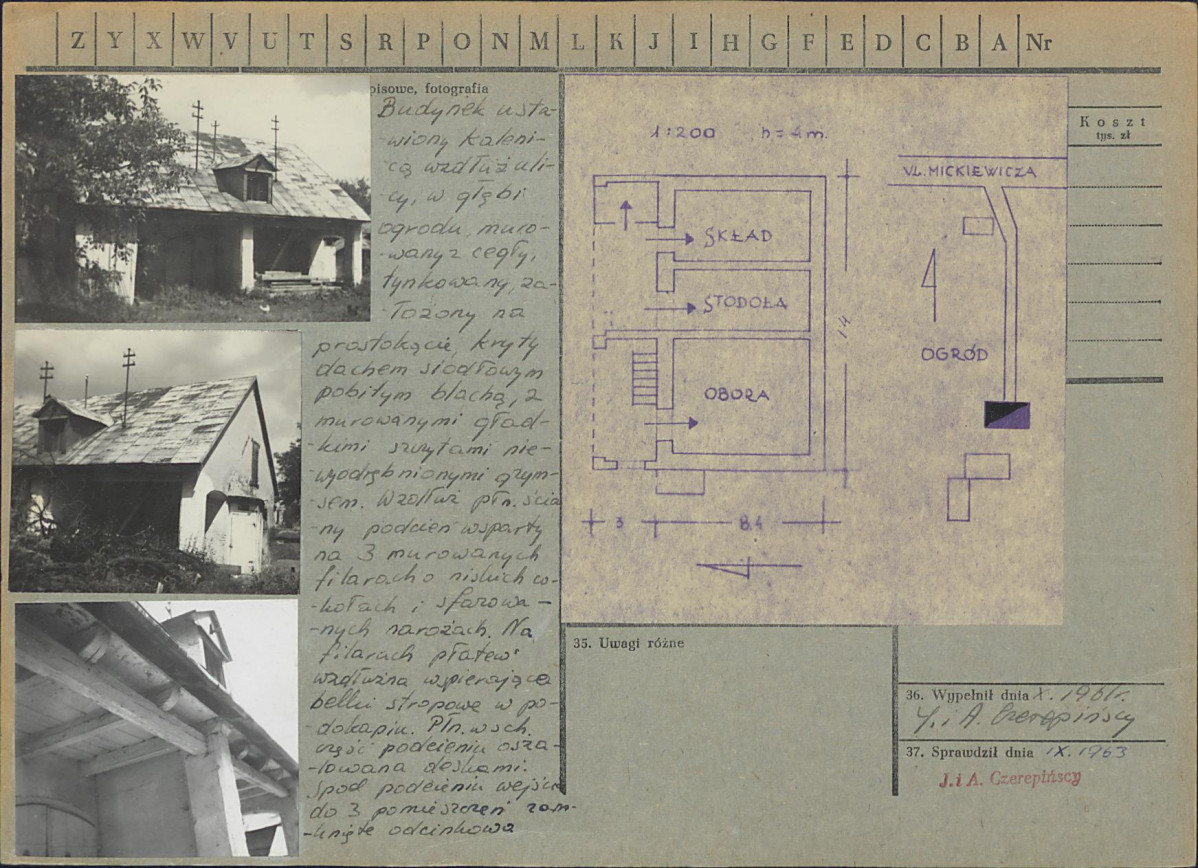 Z Y X W V U T S R P O N M L K J I H G F E D C B A Nr
isowe, fotografia
Budynek usta-
wiony kaleni-
-cą wzdłuż uli-
-cy, w głębi
ogrodu, muro-
-wany z cegły,
tynkowany, za-
-łożony na
prostokącie, kryty
dachem siodłowym
pobitym blachą, z
murowanymi gład-
-kimi szczytami nie-
-wyodrębnionymi gzym-
-sem. Wzdłuż płn. ścia
-ny podcień wsparty
na 3 murowanych
filarach o niskich co-
-kołach i sfazowa-
-nych narożach. Na
filarach płatew
wzdłużna wspierająca
belki stropowe w po-
-dokapiu. Płn. wsch.
część podcieniu osza-
-lowana deskami.
Spod podcieniu wejście
do 3 pomieszczeń zam-
-knięte odcinkowo
1:200 h=4m.
SKŁAD
STODOŁA
OBORA
14
3 8.4
UL. MICKIEWICZA
OGRÓD
Koszt
tys. zł
35. Uwagi różne
36. Wypełnił dnia X. 1961r.
J. i A. Czerepińscy
37. Sprawdził dnia IX. 1963
J. i A. Czerepińscy